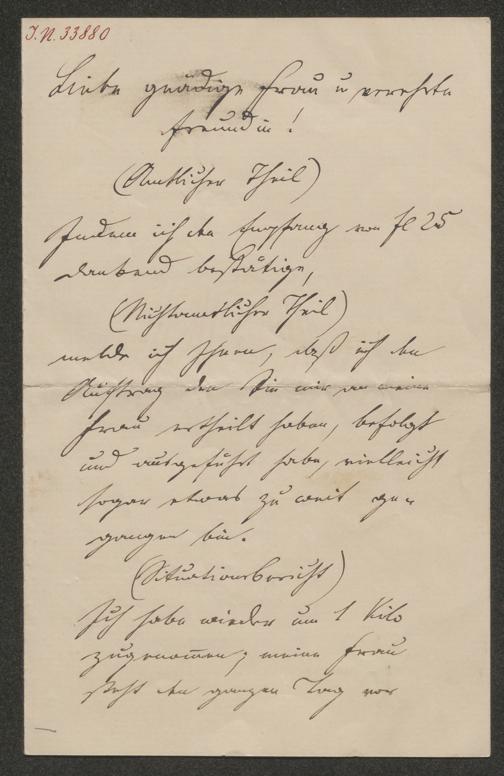 J.N. 33880
Liebe gnädige Frau u verehrte
Freundin!
(Amtlicher Theil)
Indem ich den Empfang von fl 25
dankend bestätige,
(Nichtamtlicher Theil)
melde ich Ihnen, daß ich den
Auftrag den Sie mir an meine
Frau ertheilt haben, befolgt
und ausgeführt habe, vielleicht
sogar etwas zu weit ge=
gangen bin.
(Situationsbericht)
Ich habe wieder um 1 Kilo
zugenommen; meine Frau
steht den ganzen Tag vor